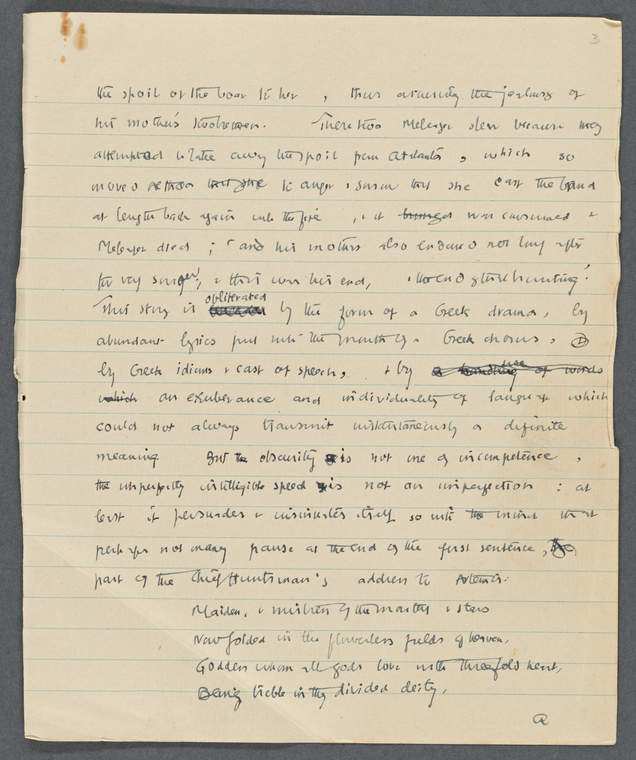 3
the spoil of the boar to her, thus arousing the jealousy of
his mother's two brethren. These two Meleager slew because they
attempted to take away the spoil from Atalanta, which so
moved to anger & sorrow that she cast the brand
at length back again into the fire, & it was consumed &
Meleager died; "and his mother also endured not long after
for very sorrow; & this was his end, & the end of that hunting."
This story is obliterated by the form of a Greek drama, by
abundant lyrics put into the mouth of a Greek chorus,
by Greek idioms & cast of speech, & by
an exuberance and individuality of language which
could not always transmit instantaneously a definite
meaning But the obscurity is not one of incompetence,
the imperfectly intelligible speed is not an imperfection: at
least it persuades & insinuates itself so into the mind that
perhaps not many pause at the end of the first sentence,
part of the Chief Huntsman's address to Artemis:
Maiden, & mistress of the months & stars
Now folded in the flowerless fields of heaven,
Goddess whom all gods love with threefold heart,
Being treble in thy divided deity,